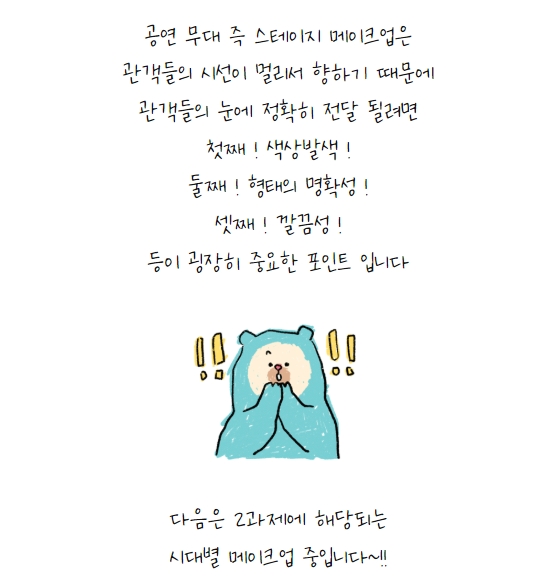 공연 무대 즉 스테이지 메이크업은
관객들의 시선이 멀리서 향하기 때문에
관객들의 눈에 정확히 전달 될려면
첫째! 색상발색!
둘째! 형태의 명확성!
셋째! 깔끔성!
등이 굉장히 중요한 포인트 입니다
!! !!
다음은 2과제에 해당되는
시대별 메이크업 중입니다~!!